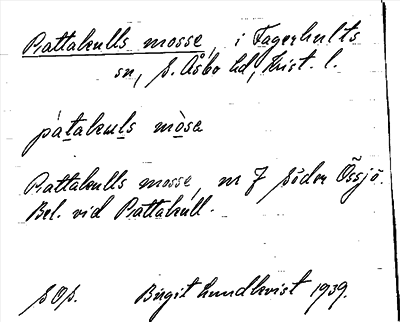 Pattakulls mosse, i Fagerhults
sn, S. Åsbo hd, Krist. l.
pàtakuls mòsa
Pattakulls mosse, m 7 söder Össjö.
Bel. vid Pattakull.
SOS. Birgit Lundkvist 1939.